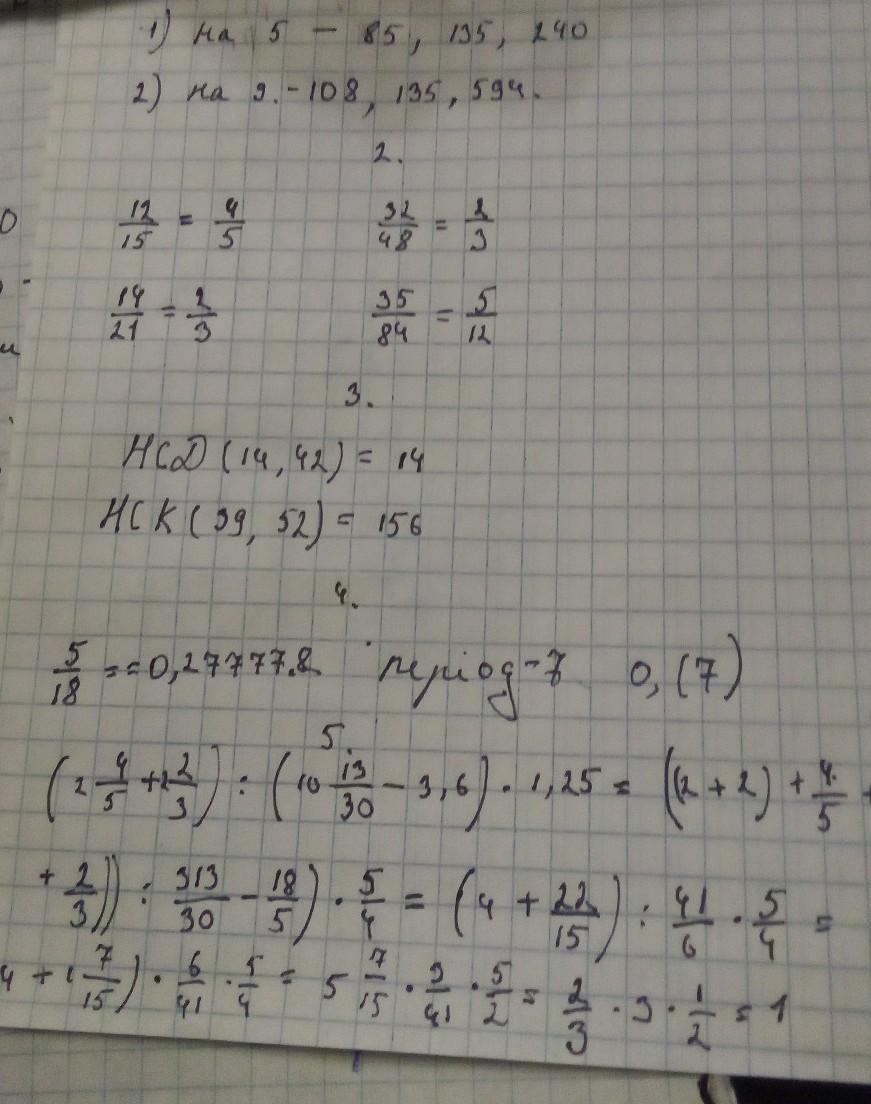 1) на 5 - 85, 135, 240
2) на 9. - 108, 135, 594.
2.
12/15 = 4/5 32/48 = 2/3
14/21 = 2/3 35/84 = 5/12
3.
НСД (14, 42) = 14
НСК (39, 52) = 156
4.
5/18 == 0,27777.8 період - 7 0, (7)
5.
(2 4/5 + 2 2/3) : (10 13/30 - 3,6) · 1,25 = ((2 + 2) + 4/5 +
+ 2/3)) : 313/30 - 18/5) · 5/4 = (4 + 22/15) : 41/6 · 5/4 =
4 + 1 7/15) · 6/41 · 5/4 = 5 7/15 · 3/41 · 5/2 = 2/3 · 3 · 1/2 = 1